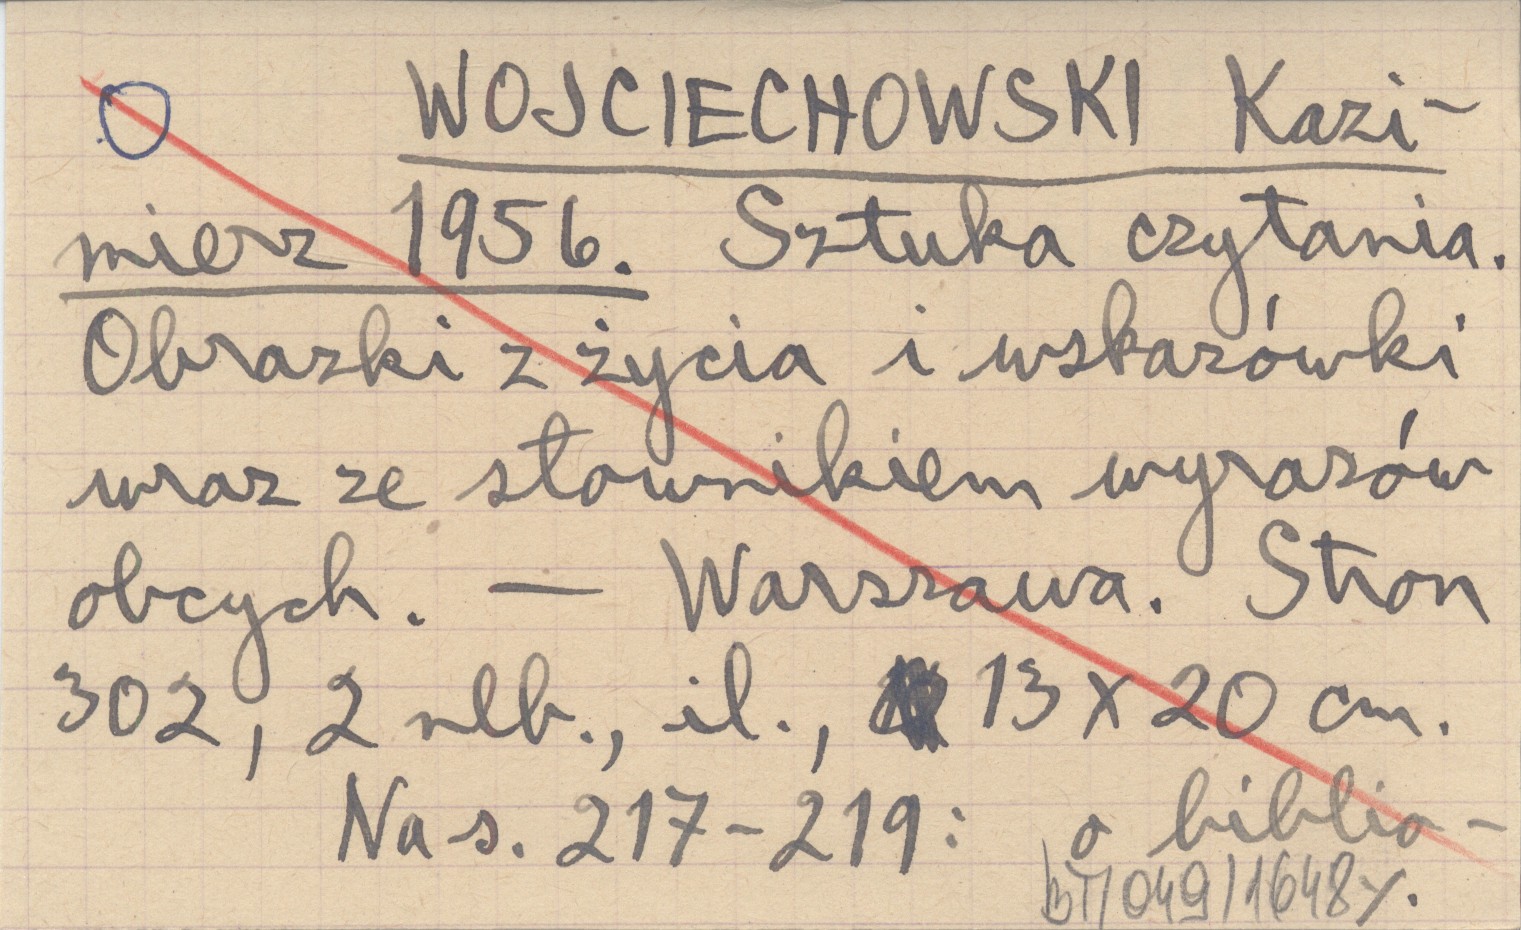 WOJCIECHOWSKI Kazi-
mierz 1956. Sztuka czytania.
Obrazki z życia i wskazówki
wraz ze słownikiem wyrazów
obcych. — Warszawa. Stron
302, 2 nlb., il., 13 x 20 cm.
Na s. 217-219: o biblio-
BT/049/1648y.